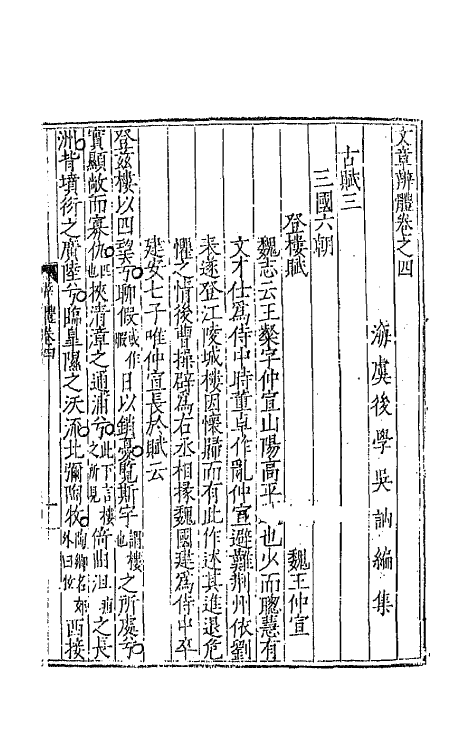 文章辨體卷之四
海虞後學吳訥編集
古賦三
三國六朝
登樓賦
魏王仲宣
魏志云王粲字仲宣山陽高平 也少而聰慧有
文才仕爲侍中時董卓作亂仲宣避難荆州依劉
表遂登江陵城樓因懷歸而有此作述其進退危
懼之情後曹操辟爲右丞相掾魏國建爲侍中卒
建安七子唯仲宣長於賦云
登茲樓以四望兮聊假或作暇日以銷憂覽斯宇謂樓也之所處兮
實顯敞而寡仇匹也挾清漳之通浦兮此下言樓之所見倚曲沮 之長
洲背墳衍之廣陸兮臨皐隰之沃流北彌陶牧陶鄉名郊外曰牧西接
辨體卷四
一